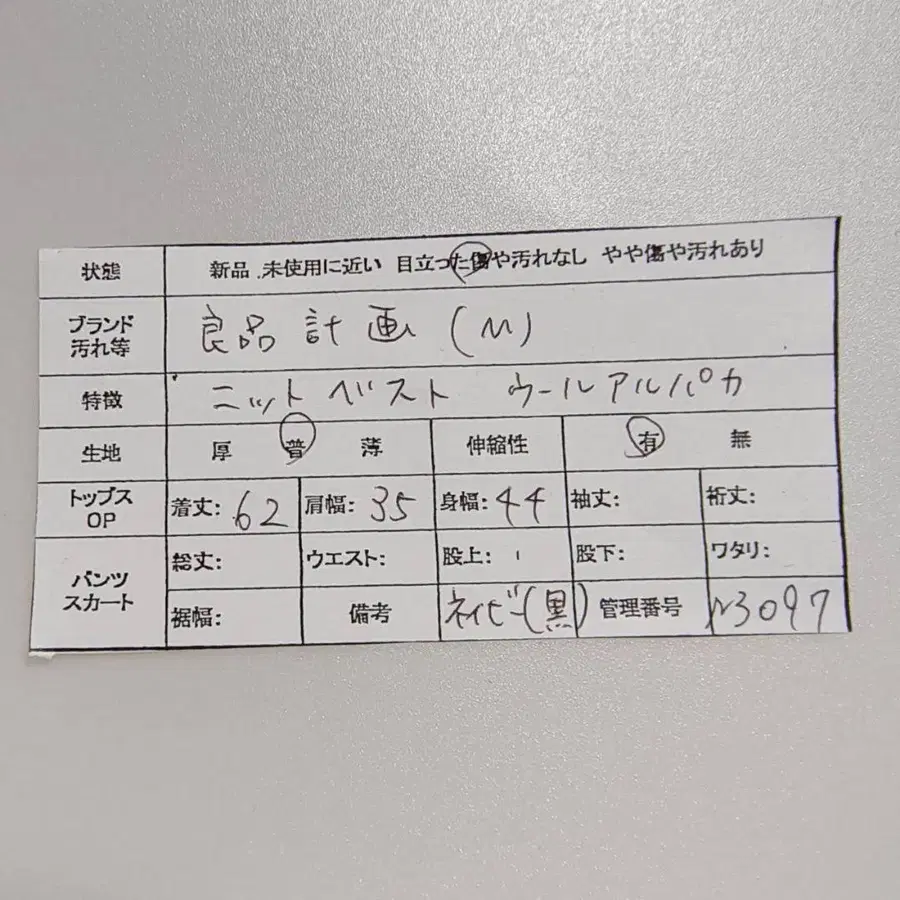 状態 新品 未使用に近い 目立った傷や汚れなし やや傷や汚れあり
ブランド
汚れ等
良品計画 (M)
特徴 ニットベスト ウールアルパカ
生地 厚 普 薄 伸縮性 有 無
トップス
OP
着丈: 62 肩幅: 35 身幅: 44 袖丈: 裄丈:
パンツ
スカート
総丈: ウエスト: 股上: 股下: ワタリ:
裾幅: 備考 ネイビー(黒) 管理番号 3097